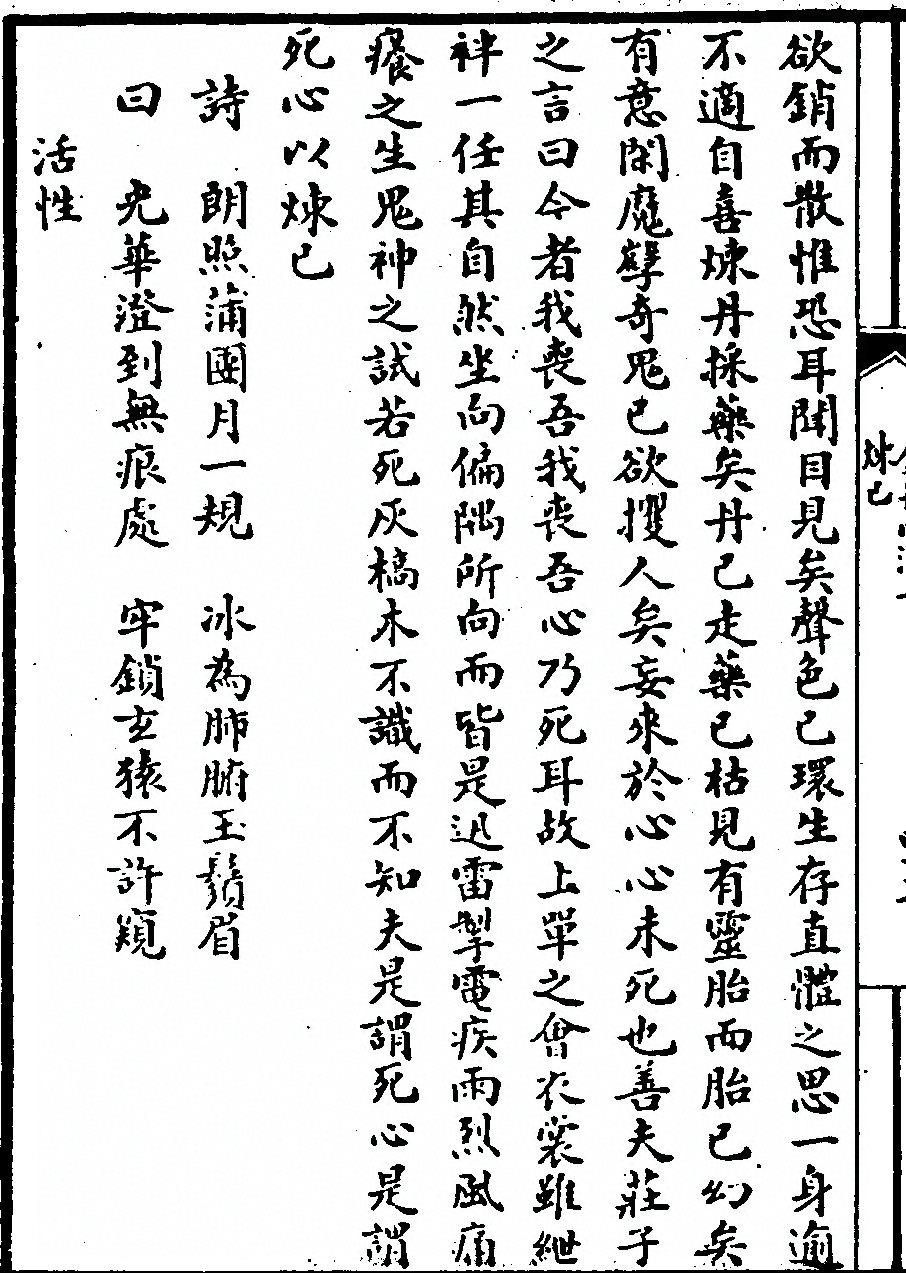 欲銷而散惟恐耳聞目見矣聲色已環生存直體之思一身逾
不適自喜煉丹採藥矣丹已走藥已枯見有靈胎而胎已幻矣
有意閑魔孽奇鬼已欲攫人矣妄來於心心未死也善夫莊子
之言曰今者我喪吾我喪吾心乃死耳故上單之會衣裳雖紲
袢一任其自然坐向偏隅所向而皆是迅雷掣電疾雨烈風痛
癢之生鬼神之試若死灰槁木不識而不知夫是謂死心是謂
死心以煉已
詩　朗照蒲團月一規　冰為肺腑玉鬚眉
曰　光華澄到無痕處　牢鎖玄猿不許窺
活性
煉已